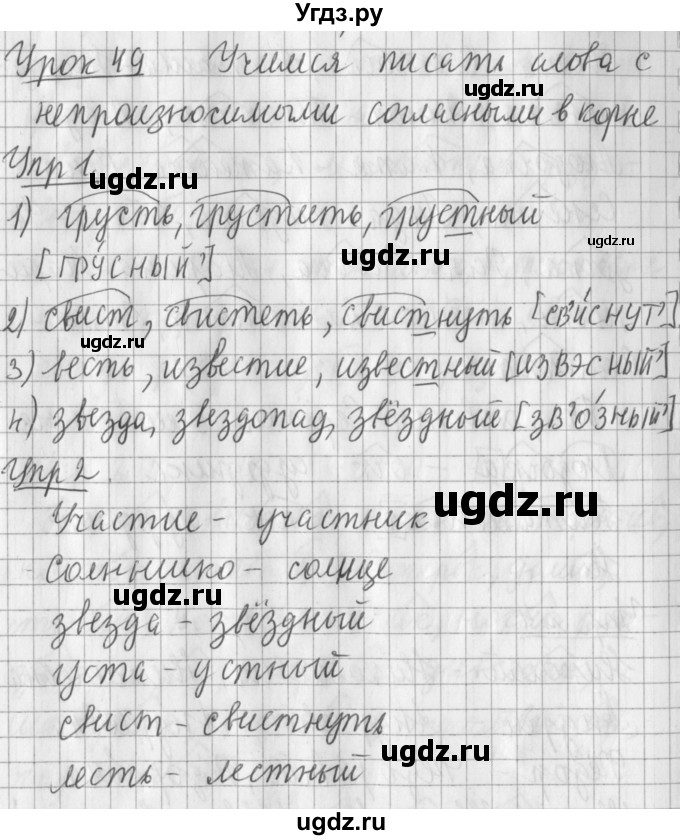 Угдз.ру
Урок 49 Учимся писать слова с
непроизносимыми согласными в корне
Упр 1.
1) грусть, грустить, грустный
[грусный']
2) свист, свистеть, свистнуть [св'иснут']
3) весть, известие, известный [извэсный']
4) звезда, звездопад, звёздный [зв'озный']
Упр 2.
Участие - участник
Солнышко - солнце
звезда - звёздный
уста - устный
свист - свистнуть
лесть - лестный
ugdz.ru
ugdz.ru
ugdz.ru
ugdz.ru
ugdz.ru
ugdz.ru
ugdz.ru
ugdz.ru
ugdz.ru